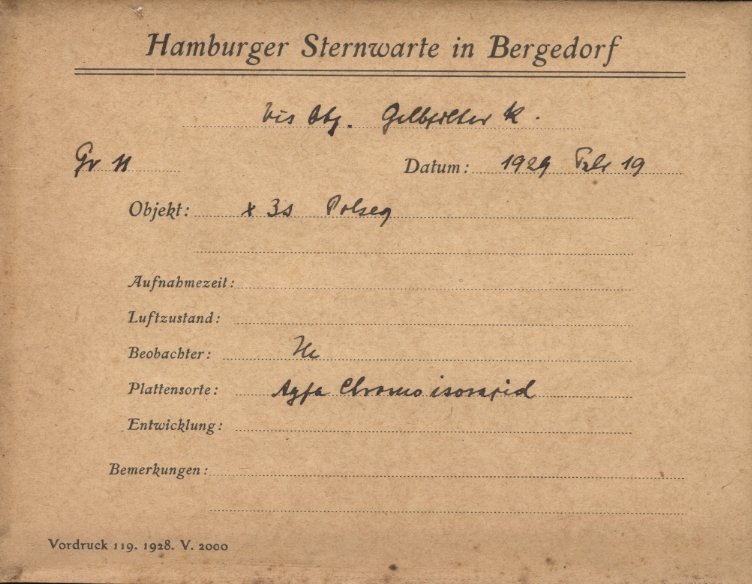 Hamburger Sternwarte in Bergedorf
vis Obj. Gelbfilter K.
Gr 11 Datum: 1929 Febr 19
Objekt: x 3s Polseq
Aufnahmezeit:
Luftzustand:
Beobachter:
Plattensorte: Agfa Chromo isorapid
Entwicklung:
Bemerkungen:
Vordruck 119. 1928. V. 2000